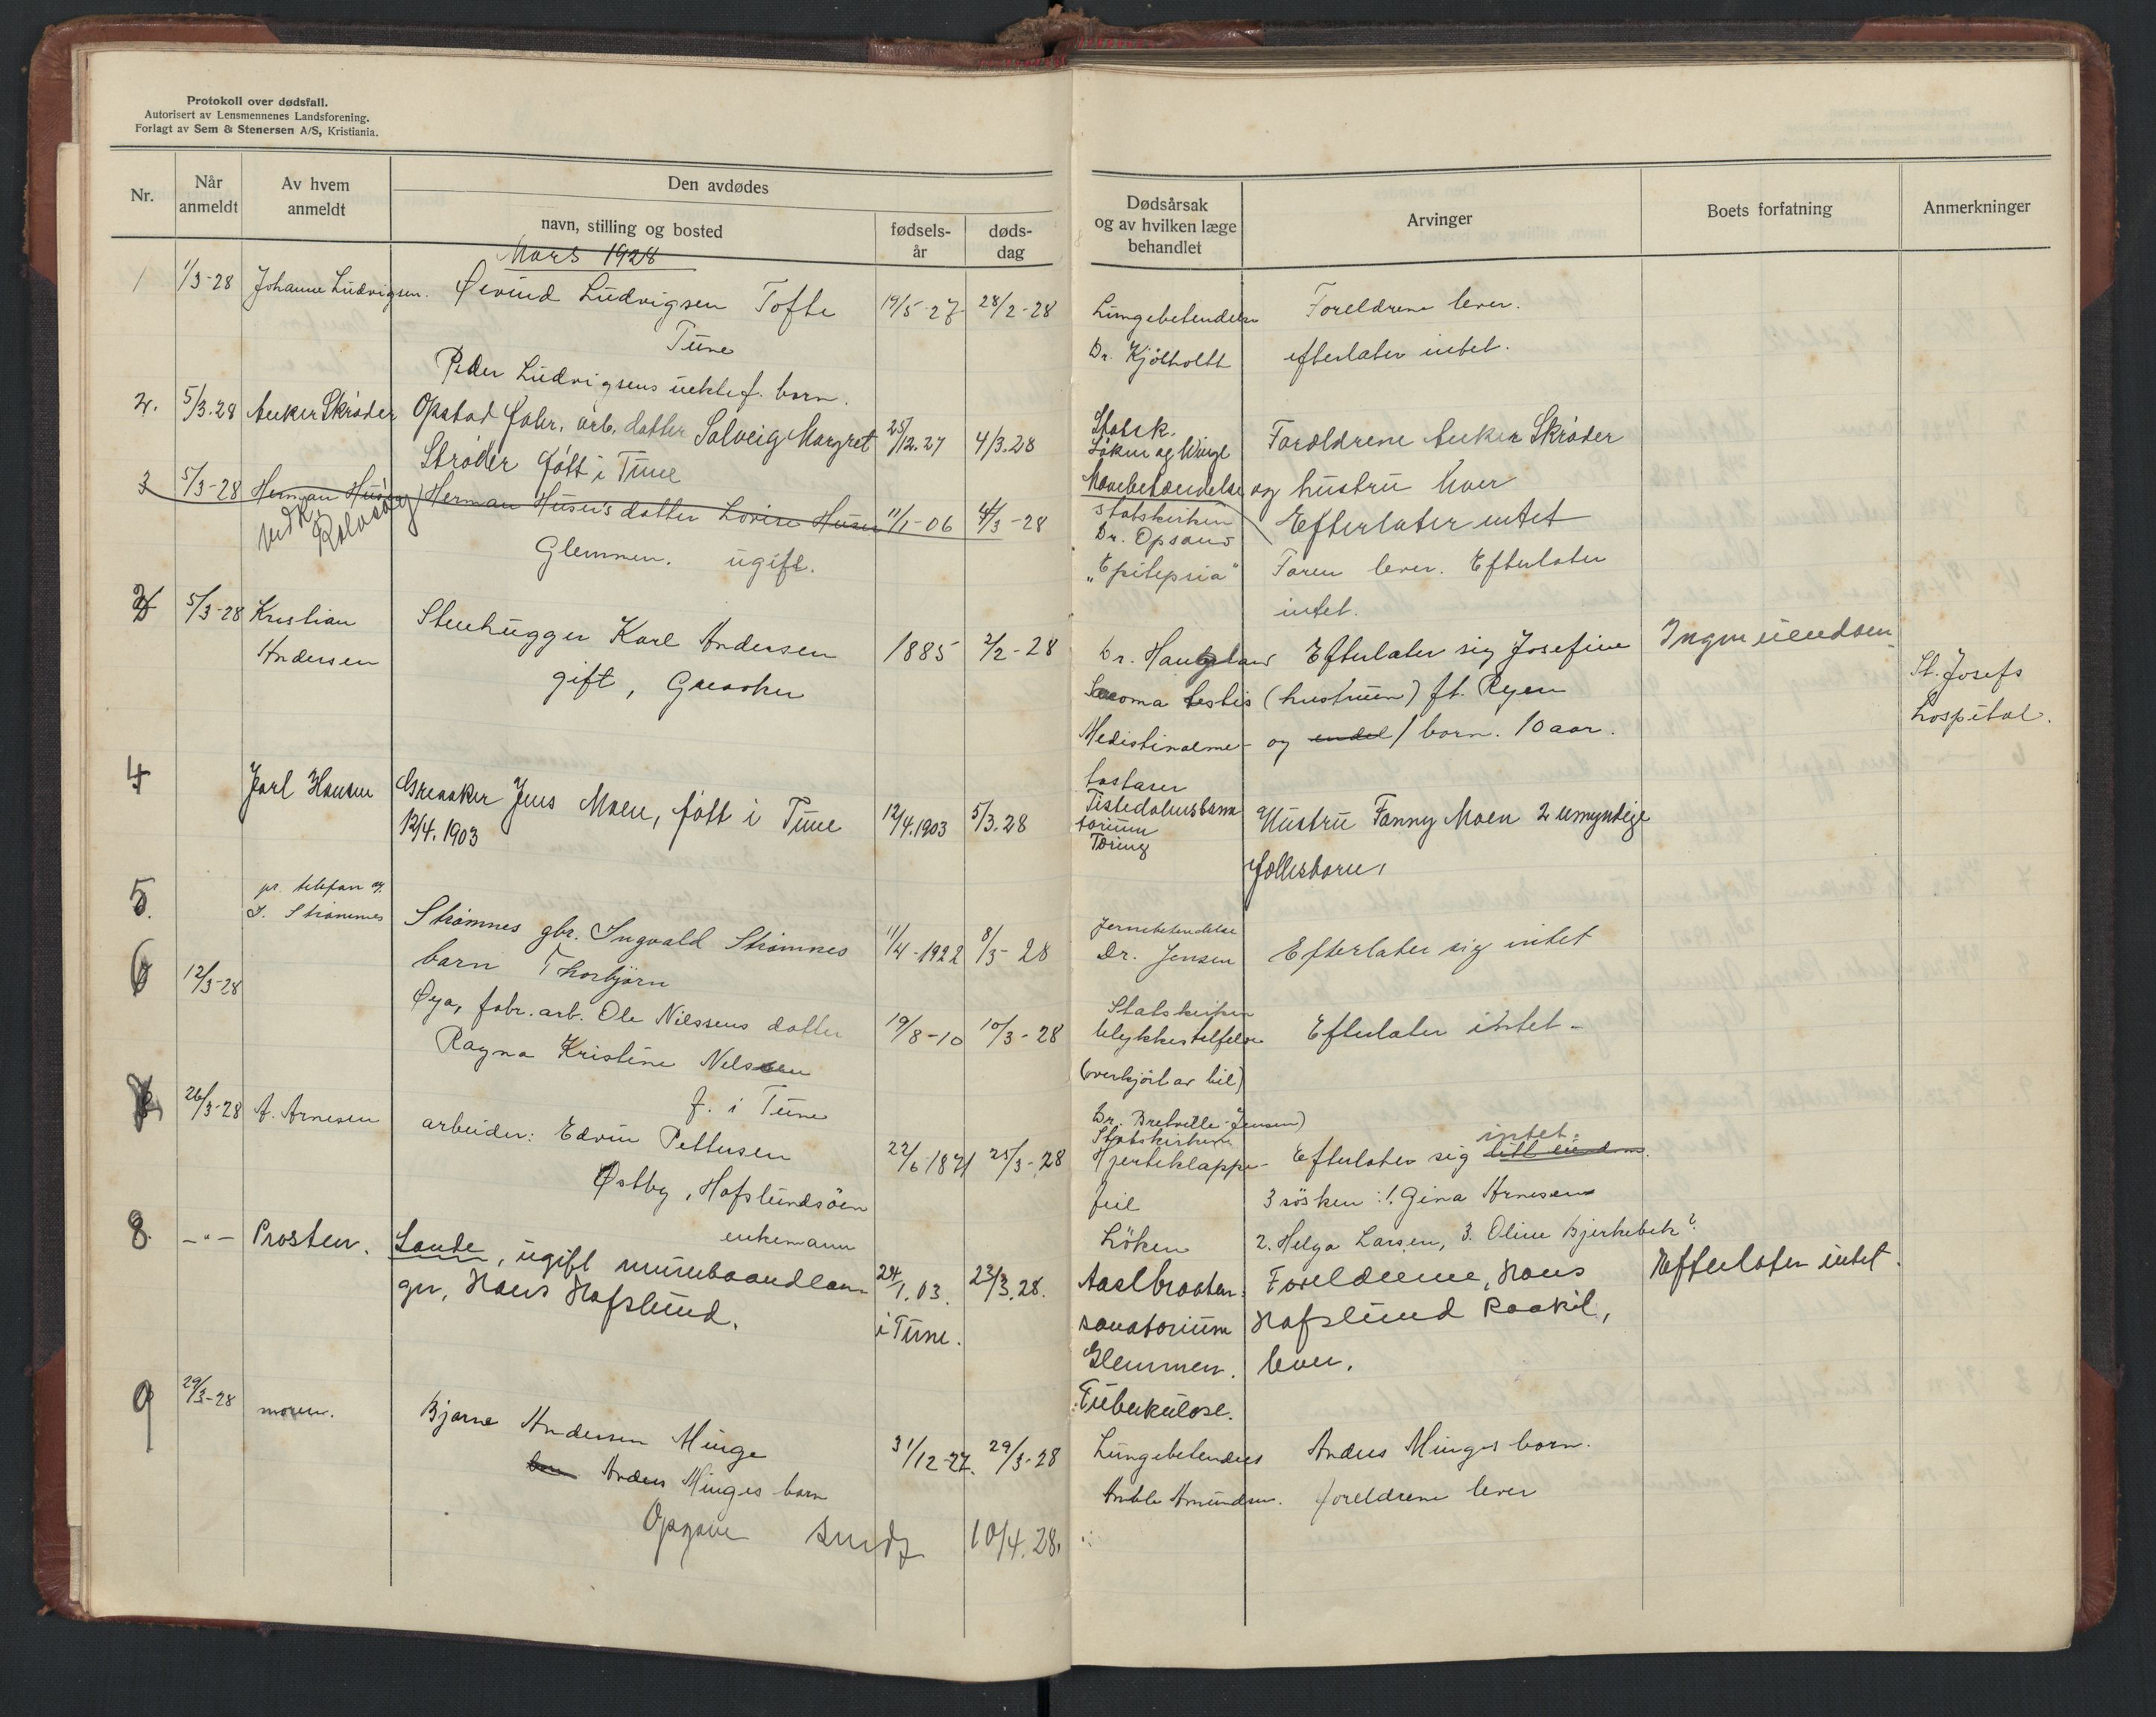 Protokoll over dødsfall.
Autorisert av Lensmennenes Landsforening.
Forlagt av Sem & Stenersen A/S, Kristiania.
Nr.
Når anmeldt
Av hvem anmeldt
Den avdødes
navn, stilling og bosted
fødsels-år
døds-dag
Dødsårsak og av hvilken læge behandlet
Arvinger
Boets forfatning
Anmerkninger
Mars 1928
1 1/3-28 Johanne Ludvigsen. Øivind Ludvigsen Tofte 19/5-27 28/2-28
Tune
Peder Ludvigsens uektef. barn.
Lungebetendelse Foreldrene lever.
Dr. Kjölholdt efterlater intet.
2. 5/3.28 Anker Skröder Opstad fabr. arb. datter Solveig Margret 25/12.27 4/3.28
Ströder født i Tune
Statsk.
Löken og Winge Foreldrene Anker Skröder
Mavebetændelse og hustru lever
Efterlater intet
3 5/3-28 Herman Huser Herman Huser's datter Lovise Huser 11/1-06 4/3-28
vedk. Rolvsöy
Glemmen. ugift.
Statskirken
Dr. Opsand
"Epilepsia" Faren lever. Efterlater
intet.
3 5/3-28 Kristian Andersen
Stenhugger Karl Andersen 1885 2/2-28
gift, Greaaker
Dr. Haugland Efterlater sig Josefine Ingen eiendom
Sarcoma testis (hustruen) ft. Ryen
og endel 1 barn. 10 aar.
St. Josefs
hospital.
4 Jarl Hansen Greaaker Jens Moen, født i Tune 12/4.1903 5/3.28
12/4.1903
Tistedalens sana
torium
Tæring
Hustru Fanny Moen 2 umyndige
fællesbarn,
5. pr. telefon av
I. Strömnes
Strömnes gbr. Ingvald Strömnes 11/4-1922 8/3-28
barn Thorbjörn
Dr. Jensen Efterlater sig intet
6 12/3-28 Øya, fabr. arb. Ole Nilssens datter 19/8-10 10/3-28
Ragna Kristine Nelssen
f. i Tune
Statskirken
Ulykkestilfelle Efterlater intet -
(overkjört av bil)
Dr. Bretville-Jensen)
7 26/3-28 A. Arnesen arbeider: Edvin Pettersen 22/6-1871 25/3-28
Østby, Hafslundsöen
enkemann
Statskirken
Hjerteklappe- Efterlater sig litt eiendom. intet.
feil 3 sösken: 1. Gina Arnesen
Löken 2. Helga Larsen, 3. Oline Bjerkebek?
8. -"- Prosten. Lande, ugift murerhaandlan-
ger, Hans Hafslund.
24/1.03. i Tune. 23/3.28.
Aaslbraaten Foreldrene, Hans Efterlater intet.
sanatorium Hafslund Raakil,
Glemmen. lever.
Tuberkulose.
9 29/3-28 moren. Bjarne Andersen Minge 31/12-27. 29/3-28
barn Anders Minges barn
Lungebetendels Anders Minges barn.
Amble Amundsen. foreldrene lever
Opgave sendt 10/4.28.